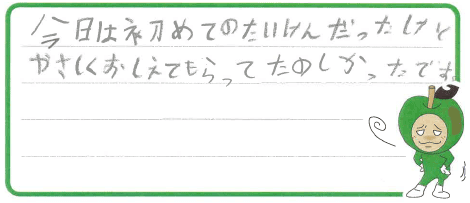 今日は初めてのたいけんだったけど
やさしくおしえてもらってたのしかったです。